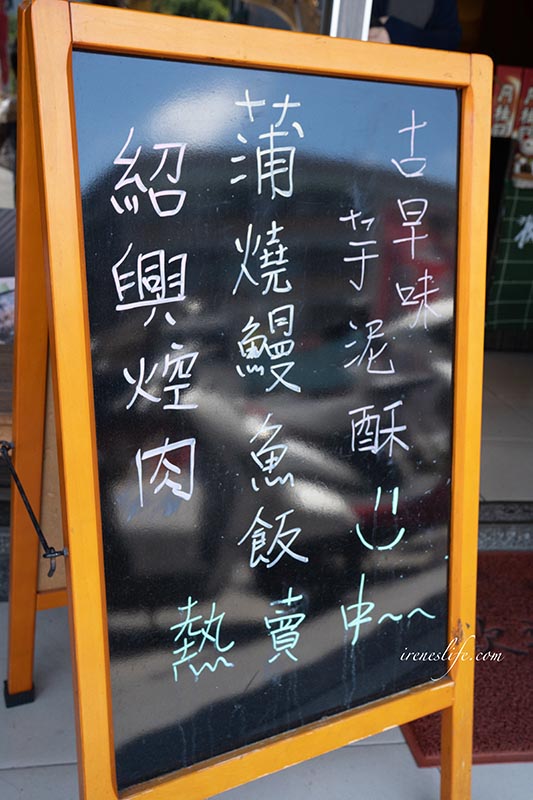 古早味
芋泥酥
蒲燒鰻魚飯
紹興焢肉
熱賣中~~
ireneslife.com